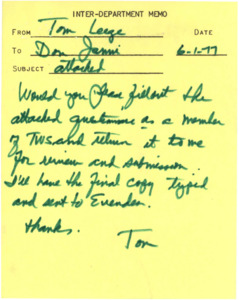 INTER-DEPARTMENT MEMO
FROM Tom Leege DATE
TO Don Janni 6-1-77
SUBJECT attached
Would you please fill out the
attached questionnaire as a member
of TWS and return it to me
for review and submission.
I'll have the final copy typed
and sent to Evenden.
Thanks.
Tom